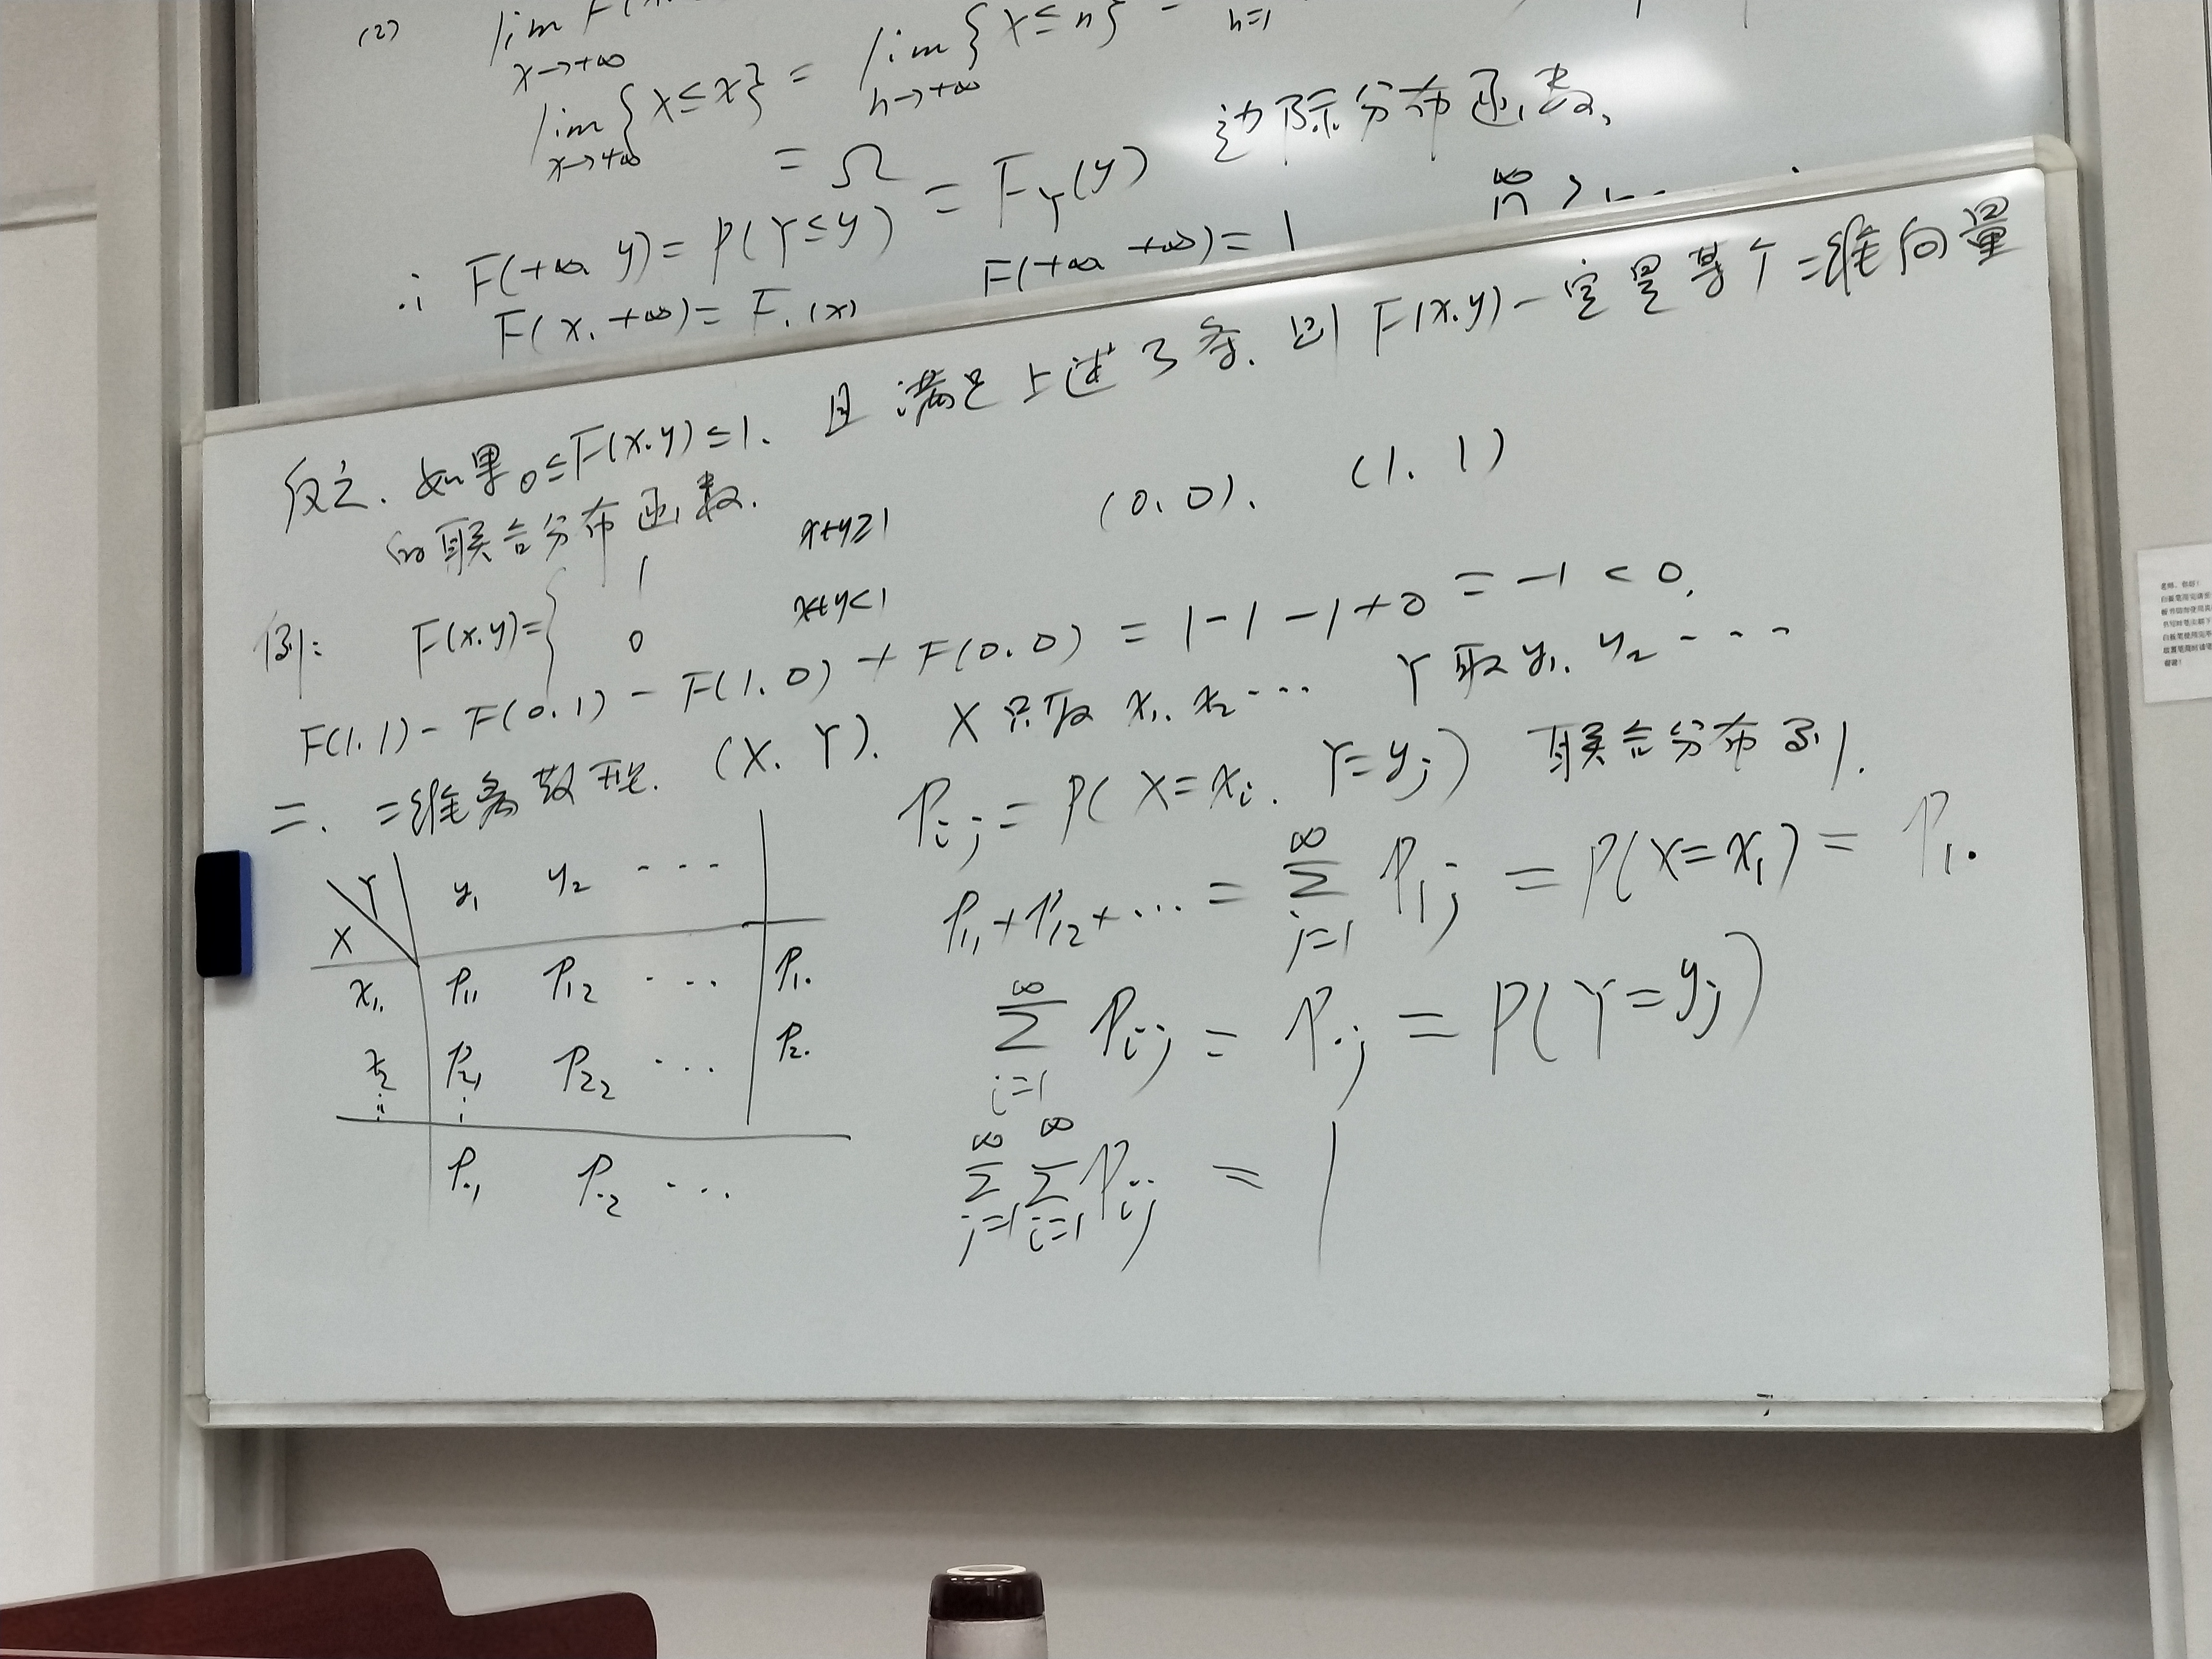 (2) lim F(x
x→+∞
lim {X≤x} = lim {X≤n} =
x→+∞ n→+∞ n=1
= Ω
∴ F(+∞, y) = P(Y≤y) = F_Y(y) 边际分布函数,
F(x, +∞) = F.(x) F(+∞ +∞) = 1
反之, 如果 0≤F(x,y)≤1, 且满足上述3条, 则F(x,y)一定是某个二维向量
的联合分布函数.
(0,0), (1,1)
例: F(x,y) = { 1 x+y≥1
0 x+y<1
F(1,1) - F(0,1) - F(1,0) + F(0,0) = 1-1-1+0 = -1 < 0,
二. 二维离散型. (X, Y). X只取 x₁, x₂ ... Y取 y₁, y₂ ...
P_ij = P(X=x_i, Y=y_j) 联合分布列.
X\Y y₁ y₂ ...
x₁ P₁₁ P₁₂ ... P₁.
x₂ P₂₁ P₂₂ ... P₂.
⋮ ⋮
P.₁ P.₂ ...
P₁₁+P₁₂+... = ∑_{j=1}^∞ P_1j = P(X=x₁) = P₁.
∑_{i=1}^∞ P_ij = P._j = P(Y=y_j)
∑_{j=1}^∞ ∑_{i=1}^∞ P_ij = 1